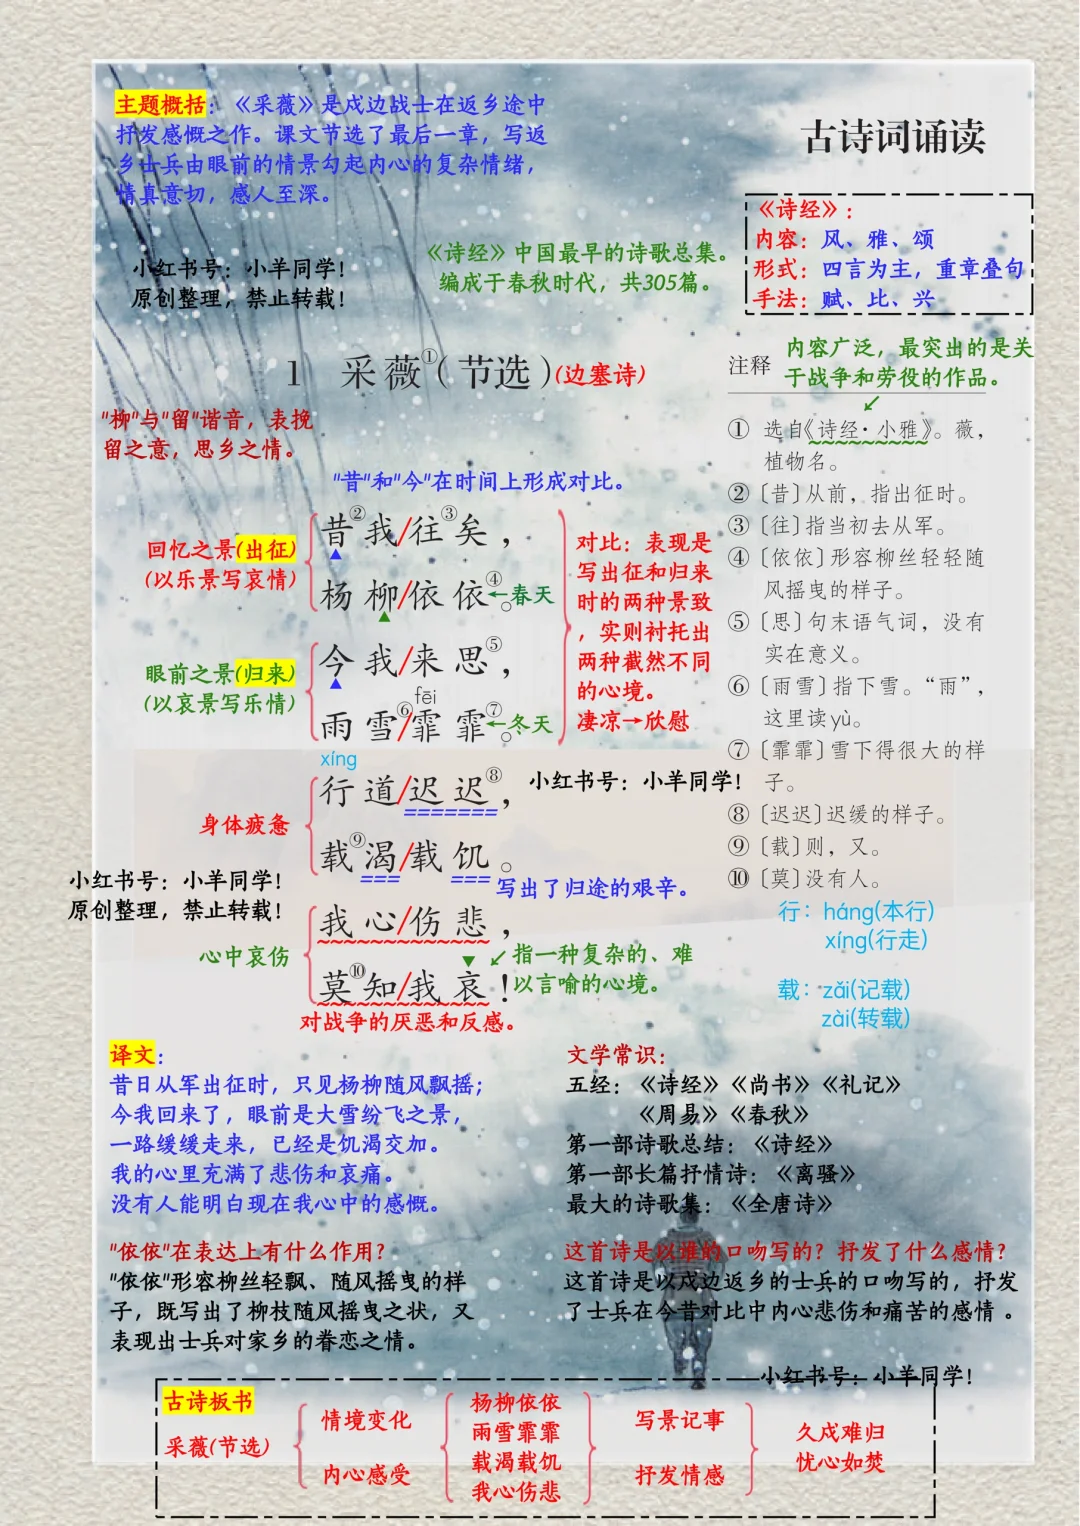 主题概括：《采薇》是戍边战士在返乡途中
抒发感慨之作。课文节选了最后一章，写返
乡士兵由眼前的情景勾起内心的复杂情绪，
情真意切，感人至深。
古诗词诵读
《诗经》：
内容：风、雅、颂
形式：四言为主，重章叠句
手法：赋、比、兴
《诗经》中国最早的诗歌总集。
编成于春秋时代，共305篇。
小红书号：小羊同学！
原创整理，禁止转载！
1 采薇①（节选）(边塞诗)
"柳"与"留"谐音，表挽
留之意，思乡之情。
"昔"和"今"在时间上形成对比。
回忆之景(出征)
(以乐景写哀情)
昔②我/往③矣，
杨柳/依依④。←春天
眼前之景(归来)
(以哀景写乐情)
今我/来思⑤，
fēi
雨雪⑥/霏霏⑦。←冬天
对比：表现是
写出征和归来
时的两种景致
，实则衬托出
两种截然不同
的心境。
凄凉→欣慰
xíng
身体疲惫
行道/迟迟⑧，
载⑨渴/载饥。
写出了归途的艰辛。
小红书号：小羊同学！
小红书号：小羊同学！
原创整理，禁止转载！
心中哀伤
我心/伤悲，
莫⑩知/我哀！
指一种复杂的、难
以言喻的心境。
对战争的厌恶和反感。
注释
内容广泛，最突出的是关
于战争和劳役的作品。
① 选自《诗经·小雅》。薇，
植物名。
②〔昔〕从前，指出征时。
③〔往〕指当初去从军。
④〔依依〕形容柳丝轻轻随
风摇曳的样子。
⑤〔思〕句末语气词，没有
实在意义。
⑥〔雨雪〕指下雪。“雨”，
这里读yù。
⑦〔霏霏〕雪下得很大的样
子。
⑧〔迟迟〕迟缓的样子。
⑨〔载〕则，又。
⑩〔莫〕没有人。
行：háng(本行)
xíng(行走)
载：zǎi(记载)
zài(转载)
译文：
昔日从军出征时，只见杨柳随风飘摇；
今我回来了，眼前是大雪纷飞之景，
一路缓缓走来，已经是饥渴交加。
我的心里充满了悲伤和哀痛。
没有人能明白现在我心中的感慨。
文学常识：
五经：《诗经》《尚书》《礼记》
《周易》《春秋》
第一部诗歌总结：《诗经》
第一部长篇抒情诗：《离骚》
最大的诗歌集：《全唐诗》
"依依"在表达上有什么作用？
"依依"形容柳丝轻飘、随风摇曳的样
子，既写出了柳枝随风摇曳之状，又
表现出士兵对家乡的眷恋之情。
这首诗是以谁的口吻写的？抒发了什么感情？
这首诗是以戍边返乡的士兵的口吻写的，抒发
了士兵在今昔对比中内心悲伤和痛苦的感情 。
小红书号：小羊同学！
古诗板书
采薇(节选)
情境变化
内心感受
杨柳依依
雨雪霏霏
载渴载饥
我心伤悲
写景记事
抒发情感
久戍难归
忧心如焚